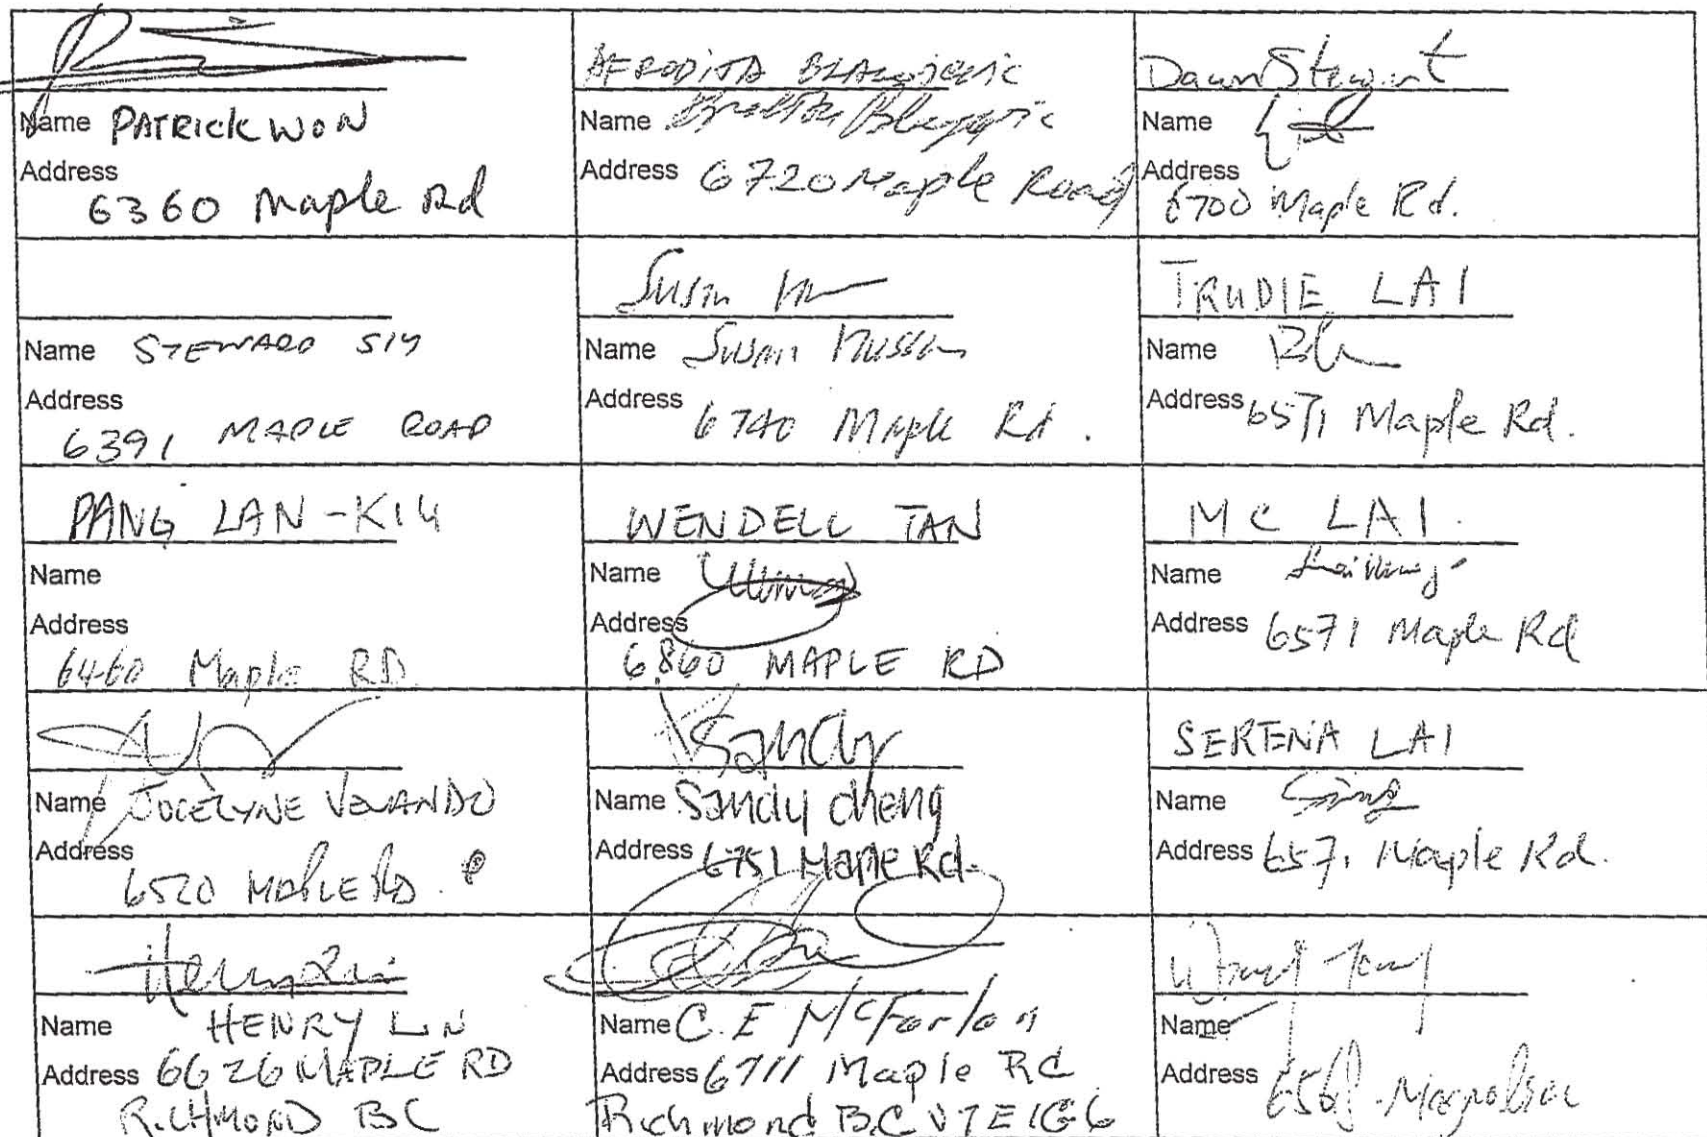 Name PATRICK WON
Address
6360 Maple Rd
AFRODITA
Name
Address 6720 Maple Road
Dawn Stewart
Name
Address
6700 Maple Rd.
Name STEWARD SIY
Address
6391 MAPLE ROAD
Susan
Name Susan
Address 6740 Maple Rd.
TRUDIE LAI
Name
Address 6571 Maple Rd.
PANG LAN-KIU
Name
Address
6460 Maple RD.
WENDELL TAN
Name
Address
6860 MAPLE RD
MC LAI.
Name
Address 6571 Maple Rd
Name JOCELYNE
Address
6520 MAPLE RD.
Sandy
Name Sandy cheng
Address 6751 Maple Rd.
SERENA LAI
Name
Address 6571 Maple Rd.
Henry Lin
Name HENRY LIN
Address 6626 MAPLE RD
RICHMOND BC
Name C. E McFarlan
Address 6711 Maple Rd
Richmond B.C V7E 1G6
Name
Address